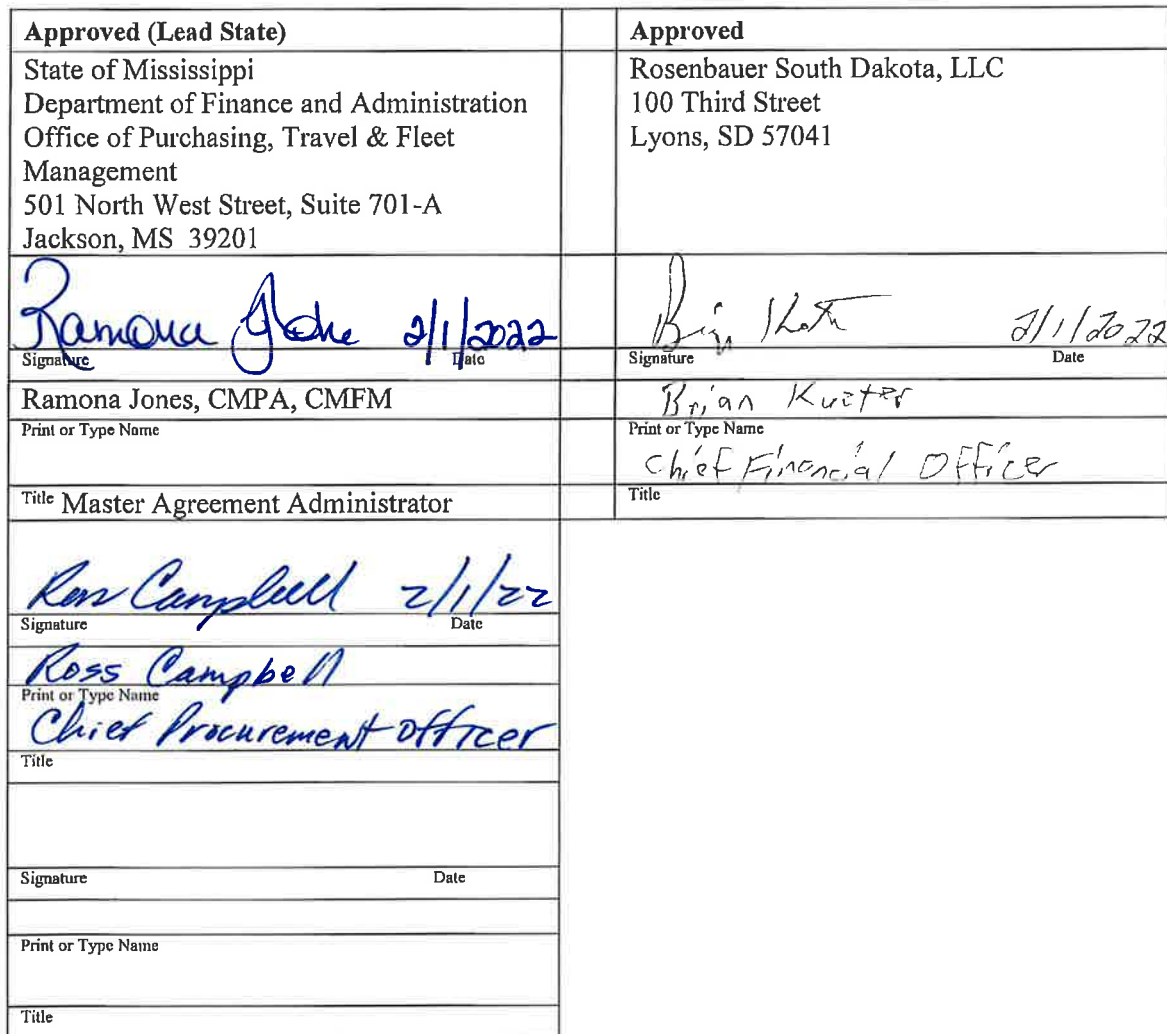 Approved (Lead State)
State of Mississippi
Department of Finance and Administration
Office of Purchasing, Travel & Fleet
Management
501 North West Street, Suite 701-A
Jackson, MS 39201
Ramona 2/1/2022
Signature Date
Ramona Jones, CMPA, CMFM
Print or Type Name
Title Master Agreement Administrator
Ross Campbell 2/1/22
Signature Date
Ross Campbell
Print or Type Name
Chief Procurement Officer
Title
Signature Date
Print or Type Name
Title
Approved
Rosenbauer South Dakota, LLC
100 Third Street
Lyons, SD 57041
2/1/2022
Signature Date
Brian
Print or Type Name
Chief Financial Officer
Title